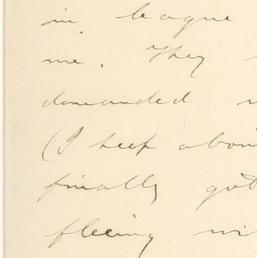 in league
me. They
demanded
(I keep
finally got
fleeing